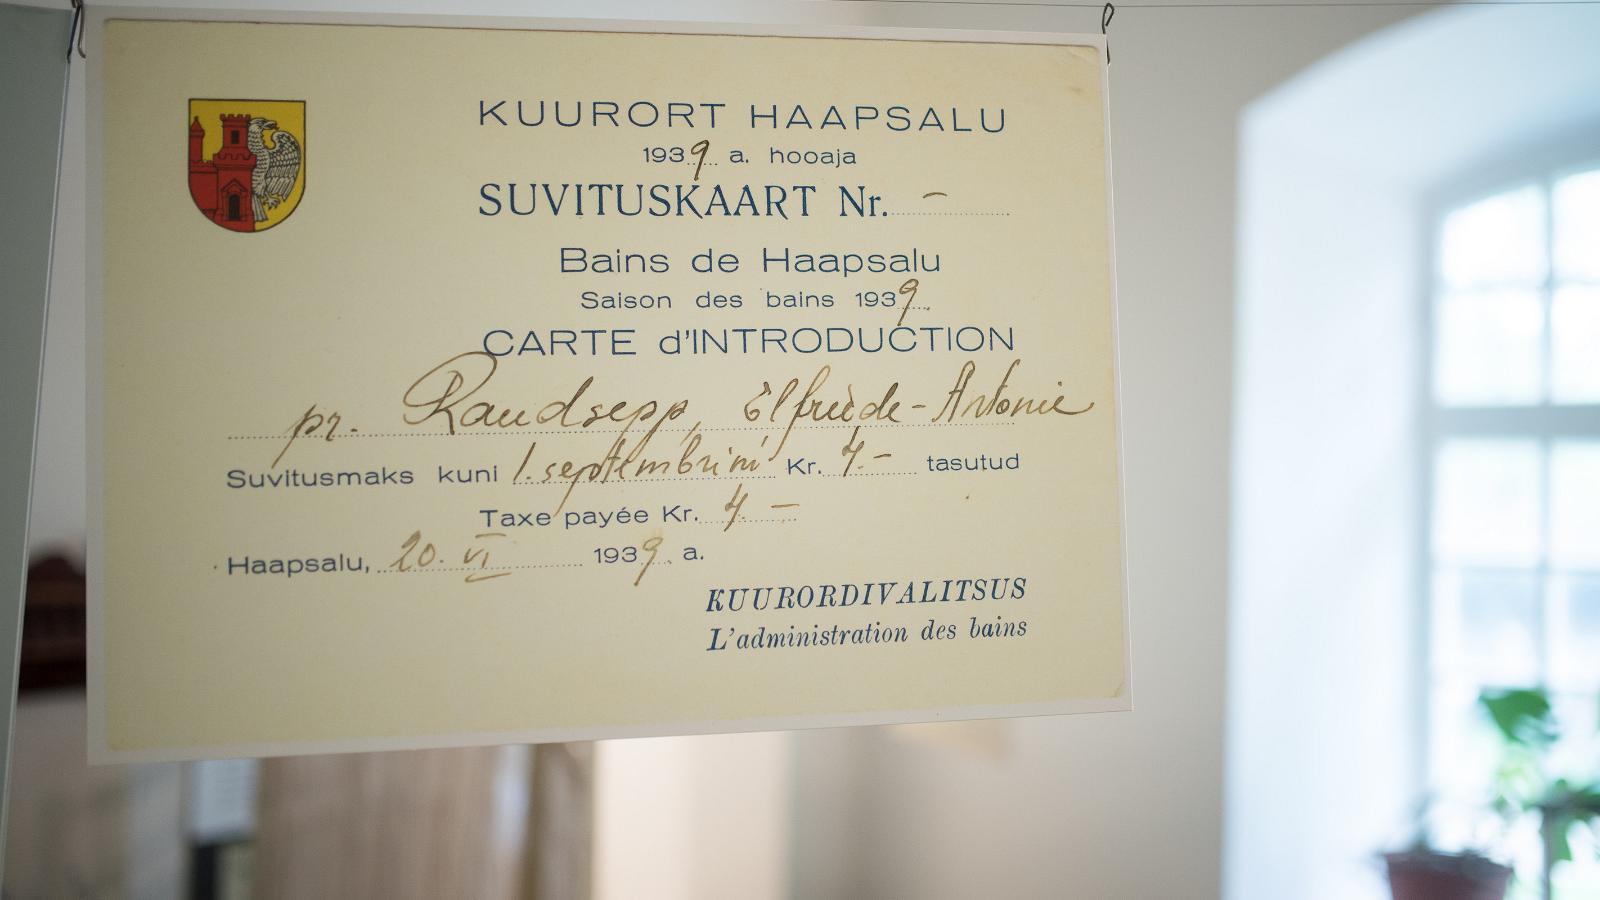 KUURORT HAAPSALU
1939 a. hooaja
SUVITUSKAART Nr. -
Bains de Haapsalu
Saison des bains 1939.
CARTE d'INTRODUCTION
pr. Raudsepp, Elfriede-Antonie
Suvitusmaks kuni 1. septembrini Kr. 4.- tasutud
Taxe payée Kr. 4. -
Haapsalu, 20. VI 1939. a.
KUURORDIVALITSUS
L'administration des bains